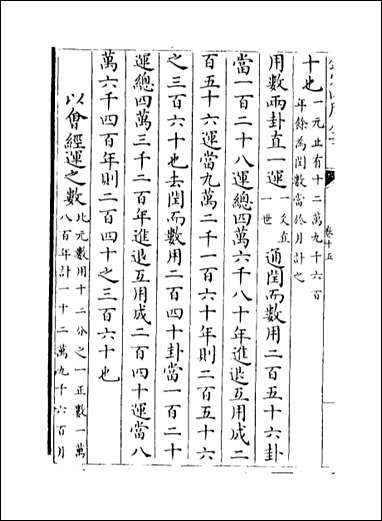 十也一元止有十二萬九千六百
年餘為閏數當於月計之
用數兩卦直一運一爻直一世通閏而數用二百五十六卦
當一百二十八運總四萬六千八十年進退互用成二
百五十六運當九萬二千一百六十年則二百五十六
之三百六十也去閏而數用二百四十卦當一百二十
運總四萬三千二百年進退互用成二百四十運當八
萬六千四百年則二百四十之三百六十也
以會經運之數此元數用十二分之一正數一萬
八百年計一十二萬九千六百月
卷十五